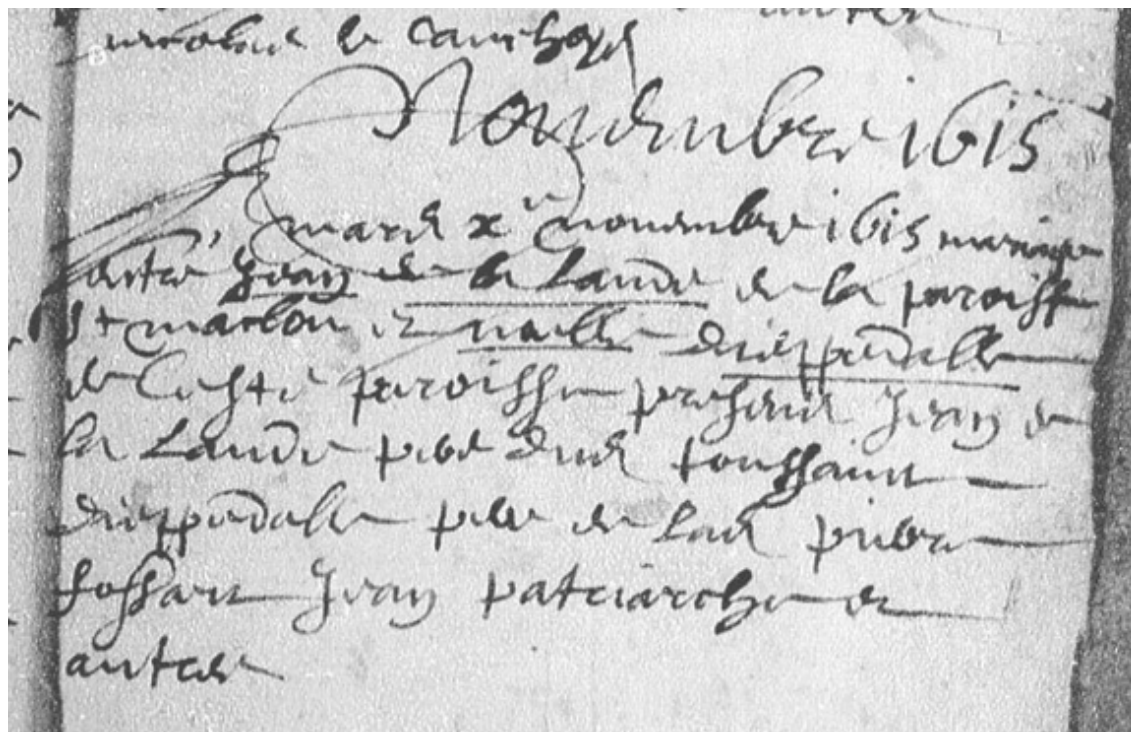 nicolas le cauchoys
Novembre 1615
mardi x novembre 1615 mariage
entre Jean de la Lande de la paroisse
St maclou et noelle dieppedalle
de ceste paroisse presents Jean de
la Lande pere dud toussaint
dieppedalle pere de lad pierre
fossart Jean patriarche et
autres